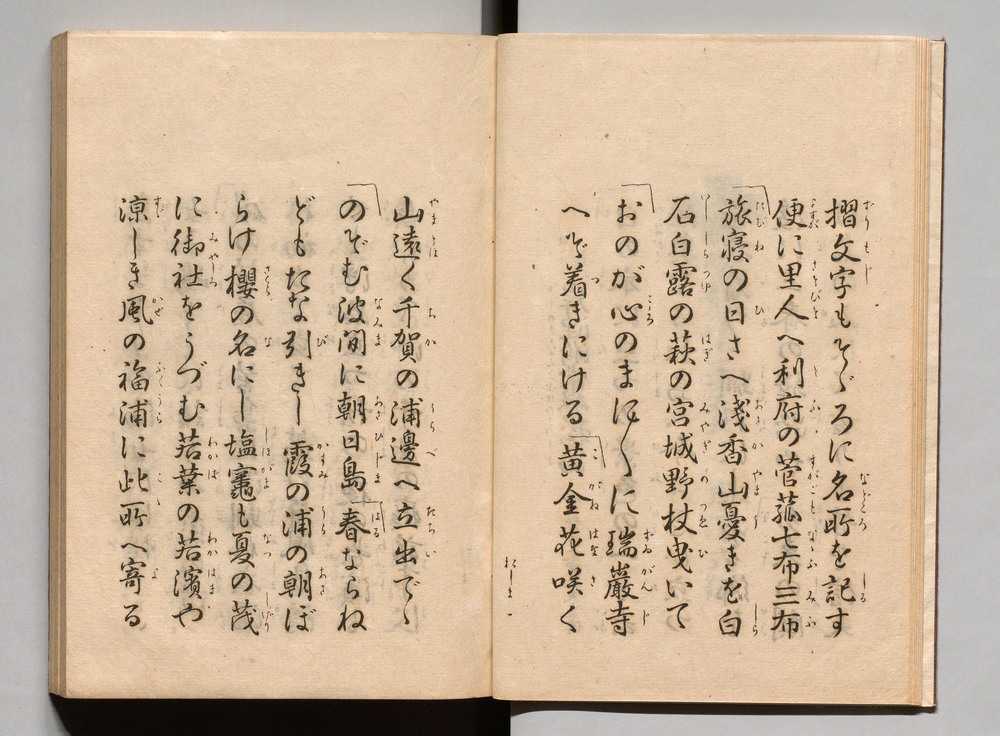 摺文字もそゞろに名所を記す
便に里人へ利府の菅菰七布三布
旅寝の日さへ浅香山憂きを白
石白露の萩の宮城野杖曳いて
おのが心のまに〳〵に瑞巌寺
へぞ着きにける黄金花咲く
山遠く千賀の浦邊へ立出でゝ
のぞむ波間に朝日島春ならね
どもたな引きし霞の浦の朝ぼ
らけ櫻の名にし塩竈も夏の茂
に御社をうづむ若葉の若濱や
涼しき風の福浦に此所へ寄る